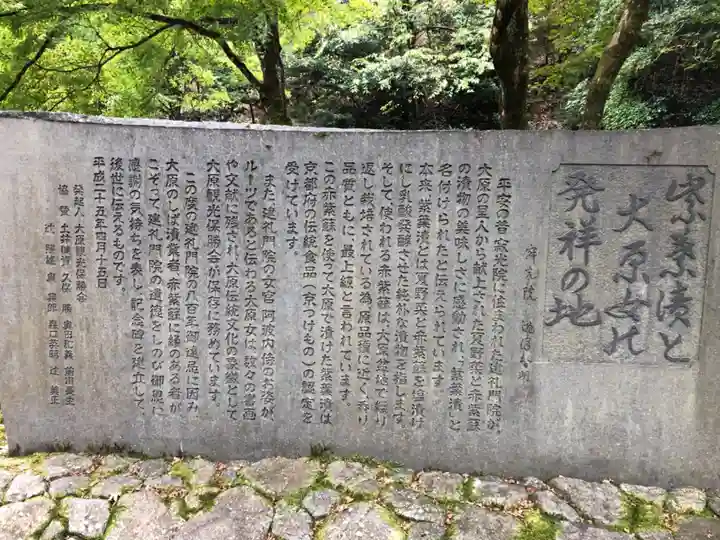 紫葉漬と
大原女の
発祥の地
寂光院
平安の昔、寂光院に住まわれた建礼門院が、
大原の里人から献上された夏野菜と赤紫蘇
の漬物の美味しさに感動され、「紫葉漬」と
名付けられたと伝えられています。
本来、紫葉漬とは夏野菜と赤紫蘇を塩漬け
にし乳酸発酵させた純朴な漬物を指します。
そして使われる赤紫蘇は、大原盆地で繰り
返し栽培されている為、原品種に近く、香り
品質ともに最上級と言われています。
この赤紫蘇を使って大原で漬けた紫葉漬は
京都府の伝統食品(京つけもの)の認定を
受けています。
また、建礼門院の女官阿波内侍のお姿が、
ルーツであると伝わる大原女は数々の書画
や文献に残され、大原伝統文化の象徴として
大原観光保勝会が保存に務めています。
この度の建礼門院の八百年御遠忌に因み、
大原のしば漬業者、赤紫蘇に縁のある者が、
こぞって建礼門院の遺徳をしのび御恩に
感謝の気持ちを表し、記念碑を建立して、
後世に伝えるものです。
平成二十五年四月十五日
発起人 大原観光保勝会
協賛 土井 久保 勝 奥田 前川
辻 奥 森口 辻